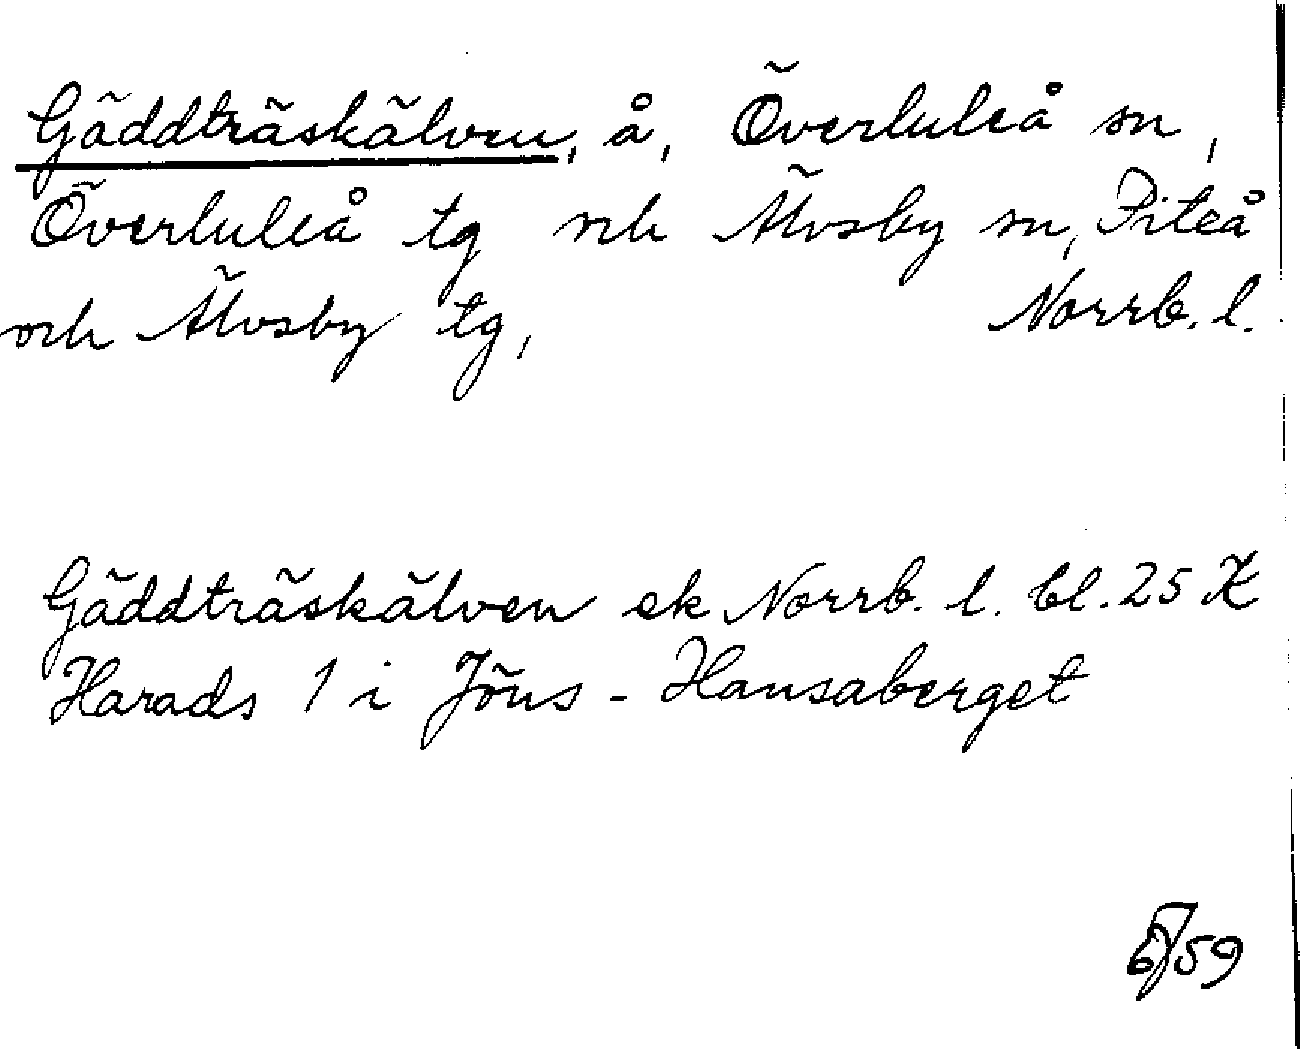 Gäddträskälven, å, Överluleå sn,
Överluleå tg och Älvsby sn, Piteå
och Älvsby tg, Norrb. l.
Gäddträskälven ek Norrb. l. bl. 25 K
Harads 1 i Jöns-Hansaberget